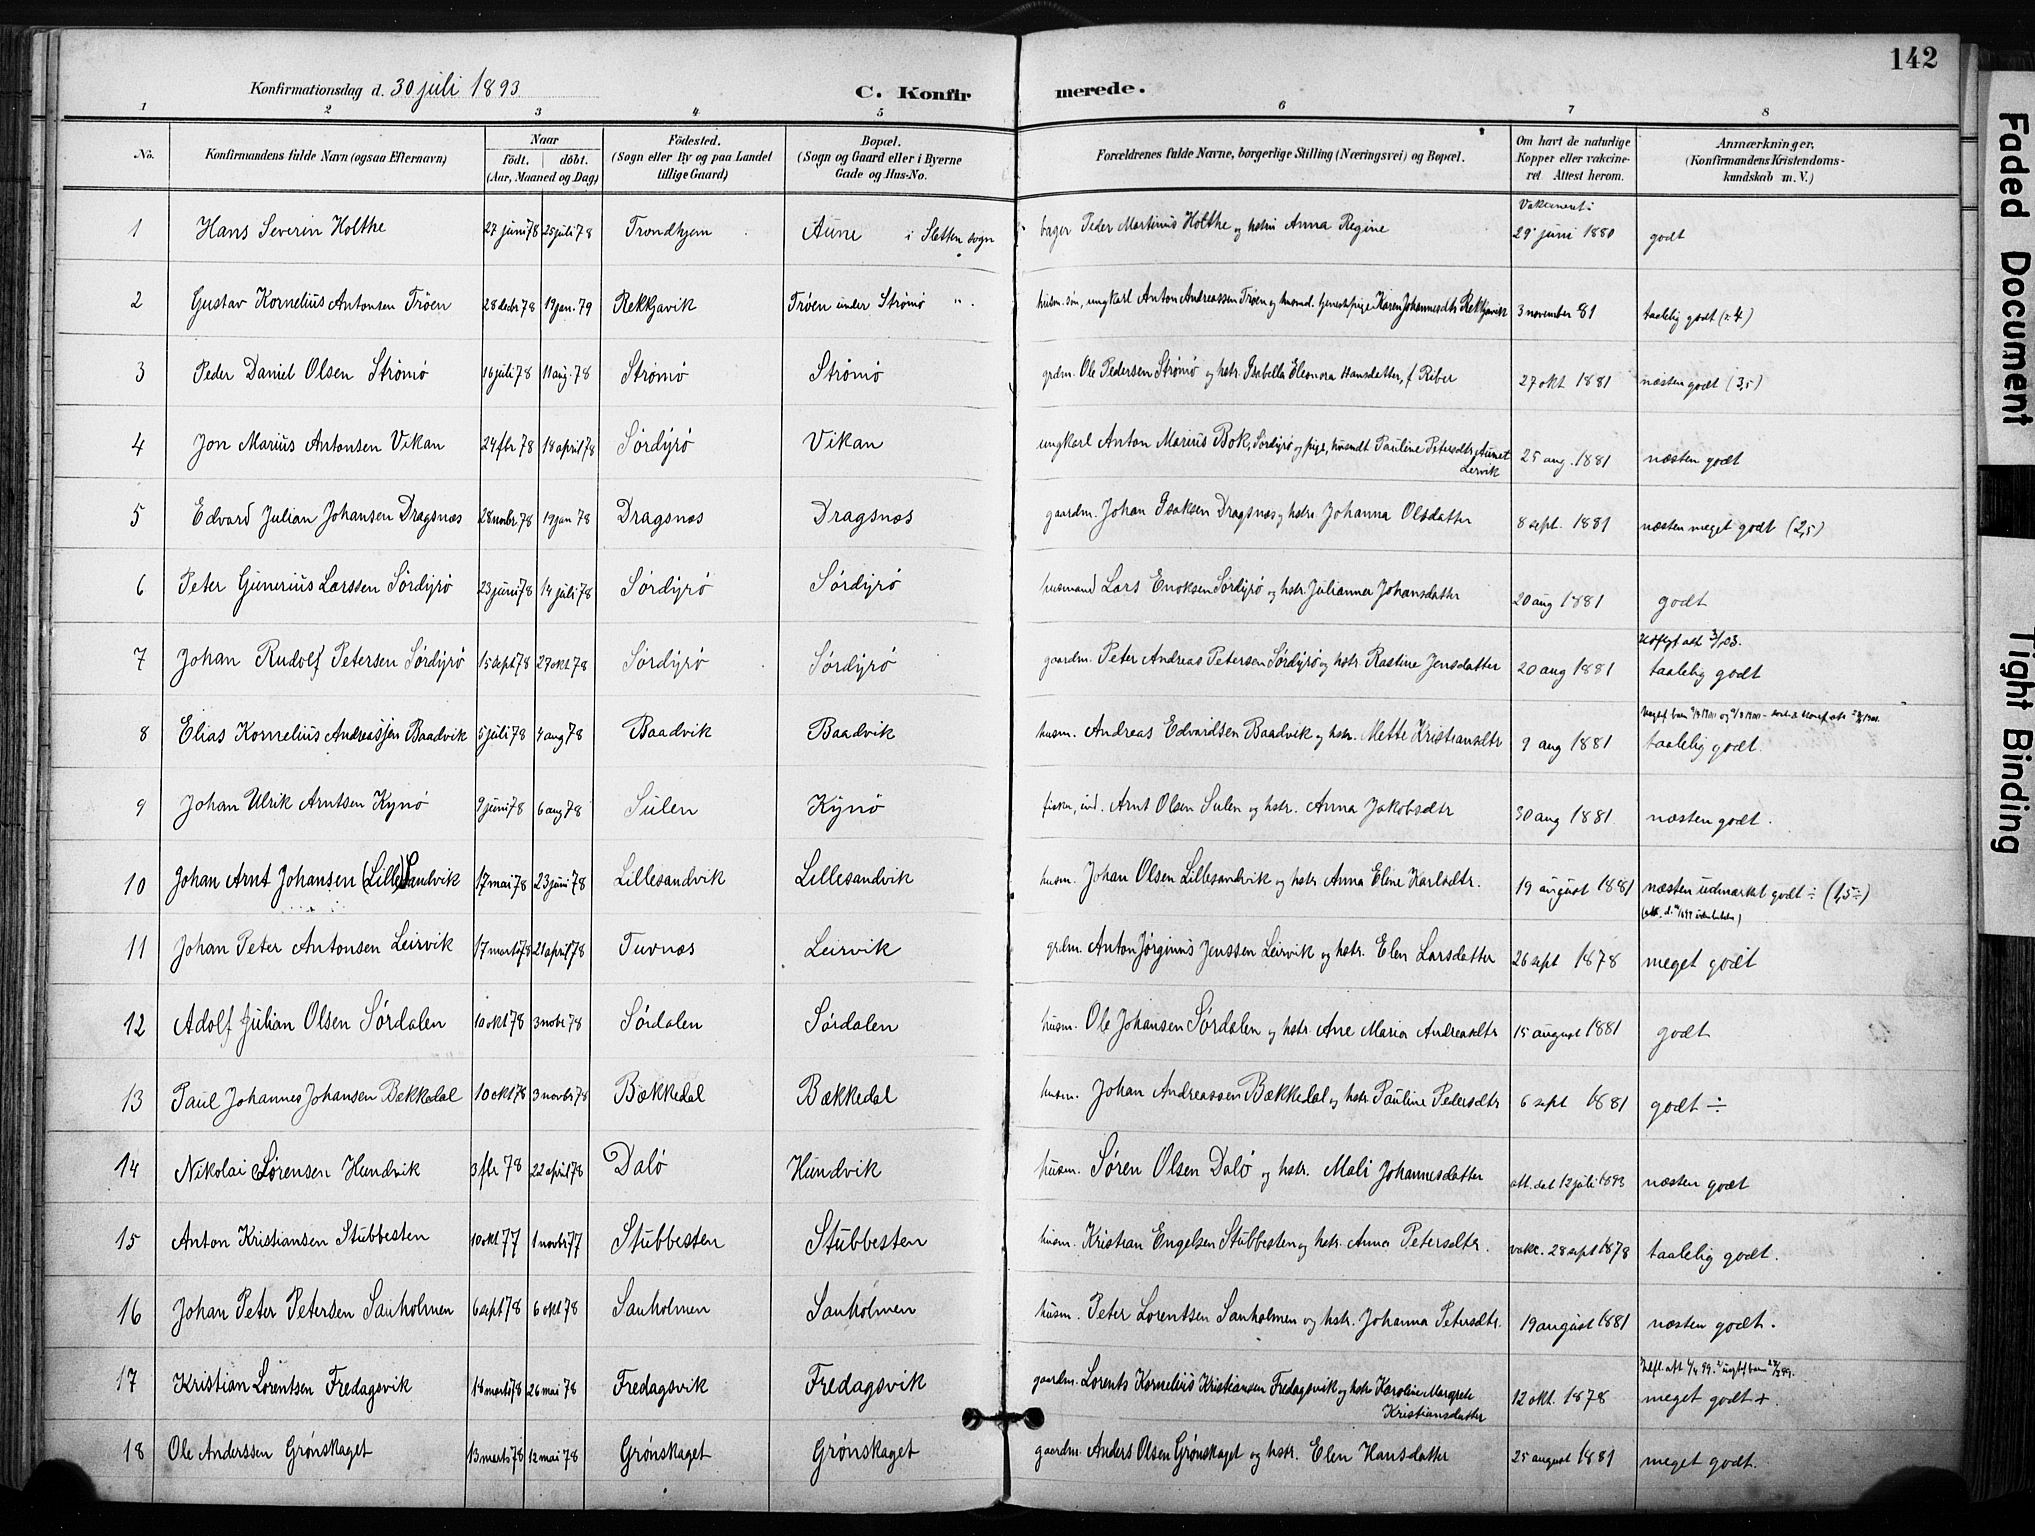 142
Konfirmationsdag d. 30 juli 1893 C. Konfirmerede.
1 2 3 4 5 6 7 8
No. Konfirmandens fulde Navn (ogsaa Efternavn) Naar født. døbt. (Aar, Maaned og Dag) Födested. (Sogn eller By og paa Landet tillige Gaard) Bopæl. (Sogn og Gaard eller i Byerne Gade og Hus-No. Forældrenes fulde Navne, borgerlige Stilling (Næringsvei) og Bopæl. Om havt de naturlige Kopper eller vakcineret Attest herom. Anmærkninger, (Konfirmandens Kristendomskundskab m. V.)
1 Hans Severin Holthe 27 juni 78 25 juli 78 Trondhjem Aune i Sletten sogn bager Peder Martinus Holthe og hstru Anna Regine Vakcineret: 29 juni 1880 godt
2 Gustav Kornelius Antonsen Trøen 28 decbr 78 19 jan. 79 Rekkjavik Trøen under Strømø husm. søn, ungkarl Anton Andreassen Trøen og Karen Johannesdtr Rekkjavik 3 november 81 taalelig godt (÷ 4)
3 Peder Daniel Olsen Strømø 16 juli 78 11 aug. 78 Strømø Strømø grdm. Ole Pedersen Strømø og hstr. Isabella Eleonora Hansdatter, f Riber 27 okt 1881 næsten godt (3,5)
4 Jon Marius Antonsen Vikan 24 fbr 78 18 april 78 Sørdyrø Vikan ungkarl Anton Marius Bok, Sørdyrø og pige, husmdt Pauline Petersdtr Aunet Lervik 25 aug. 1881 næsten godt
5 Edvard Julian Johansen Dragsnæs 28 novbr 78 19 jan 78 Dragsnæs Dragsnæs gaardm. Johan Isaksen Dragsnæs og hstr. Johanna Olsdatter 8 sept. 1881 næsten meget godt (2,5)
6 Peter Gunerius Larssen Sørdyrø 23 juni 78 14 juli 78 Sørdyrø Sørdyrø husmand Lars Enoksen Sørdyrø og hstr. Julianna Johansdatter 20 aug 1881 godt
7 Johan Rudolf Petersen Sørdyrø 15 sept 78 27 okt 78 Sørdyrø Sørdyrø gaardm. Peter Andreas Petersen Sørdyrø og hstr. Rastine Jensdatter 20 aug 1881 taalelig godt
8 Elias Kornelius Andreassen Baadvik 5 juli 78 4 aug 78 Baadvik Baadvik husm. Andreas Edvardsen Baadvik og hstr. Mette Kristiansdtr 9 aug 1881 taalelig godt.
9 Johan Ulrik Arntsen Kynø 9 juni 78 6 aug 78 Sulen Kynø fisker, ind. Arnt Olsen Sulen og hstr. Anna Jakobsdtr 30 aug 1881 næsten godt.
10 Johan Arnt Johansen (Lille)Sandvik 17 mai 78 23 juni 78 Lillesandvik Lillesandvik husm. Johan Olsen Lillesandvik og hstr Anna Eline Karlsdtr. 19 august 1881 næsten udmærket godt ÷ (1,5 ÷)
11 Johan Peter Antonsen Leirvik 17 marts 78 21 april 78 Tuvnæs Leirvik grdm. Anton Jørginus Jenssen Leirvik og hstr. Elen Larsdatter 26 sept 1878 meget godt
12 Adolf Julian Olsen Sørdalen 10 okt 78 3 novbr 78 Sørdalen Sørdalen husm. Ole Johansen Sørdalen og hstr. Ane Maria Andreasdtr 15 august 1881 godt
13 Paul Johannes Johansen Bekkedal 10 okt 78 3 novbr 78 Bækkedal Bækkedal husm. Johan Andreassen Bækkedal og hstr. Pauline Pedersdtr 6 sept 1881 godt ÷
14 Nikolai Sørensen Hundvik 3 fbr 78 22 april 78 Dalø Hundvik husm. Søren Olsen Dalø og hstr. Mali Johannesdatter att. dat 12 juli 1893 næsten godt
15 Anton Kristiansen Stubbesten 10 okt 77 1 novbr 77 Stubbesten Stubbesten husm. Kristian Engelsen Stubbesten og hstr. Anna Petersdtr. vakc. 28 sept 1878 taalelig godt.
16 Johan Peter Petersen Sauholmen 6 sept 78 6 okt 78 Sauholmen Sauholmen husm. Peter Lorentsen Sauholmen og hstr. Johanna Petersdtr. 19 august 1881 næsten godt.
17 Kristian Lorentsen Fredagsvik 18 marts 78 26 mai 78 Fredagsvik Fredagsvik gaardm. Lorents Kornelius Kristiansen Fredagsvik og hstr Karoline Margrete Kristiansdatter 12 okt. 1878 meget godt +.
18 Ole Anderssen Grønskaget 13 marts 78 12 mai 78 Grønskaget Grønskaget gaardm. Anders Olsen Grønskaget og hstr. Elen Hansdatter 25 august 1881 meget godt.
Faded Document
Tight Binding